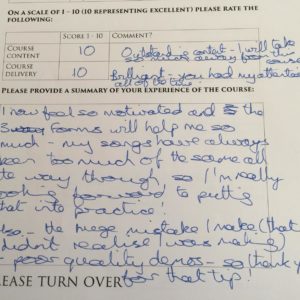 ON A SCALE OF 1 - 10 (10 REPRESENTING EXCELLENT) PLEASE RATE THE
FOLLOWING:
SCORE 1 - 10 COMMENT?
COURSE CONTENT 10 content - I will take
away from the course
COURSE DELIVERY 10 Brilliant - you had my attention
all of the time
PLEASE PROVIDE A SUMMARY OF YOUR EXPERIENCE OF THE COURSE:
I now feel so motivated and
forms will help me so
much - my songs have always
been too much of the same all
the way through so I'm really
looking forward to putting
that into practice!
Also - the huge mistake I make (that I
didn't realise I was making)
- poor quality demos - so thank you
for that tip!
PLEASE TURN OVER